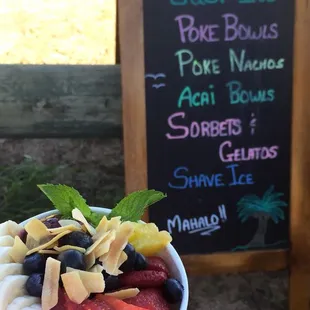 Poke Bowls
Poke Nachos
Acai Bowls
Sorbets &
Gelatos
Shave Ice
Mahalo!!